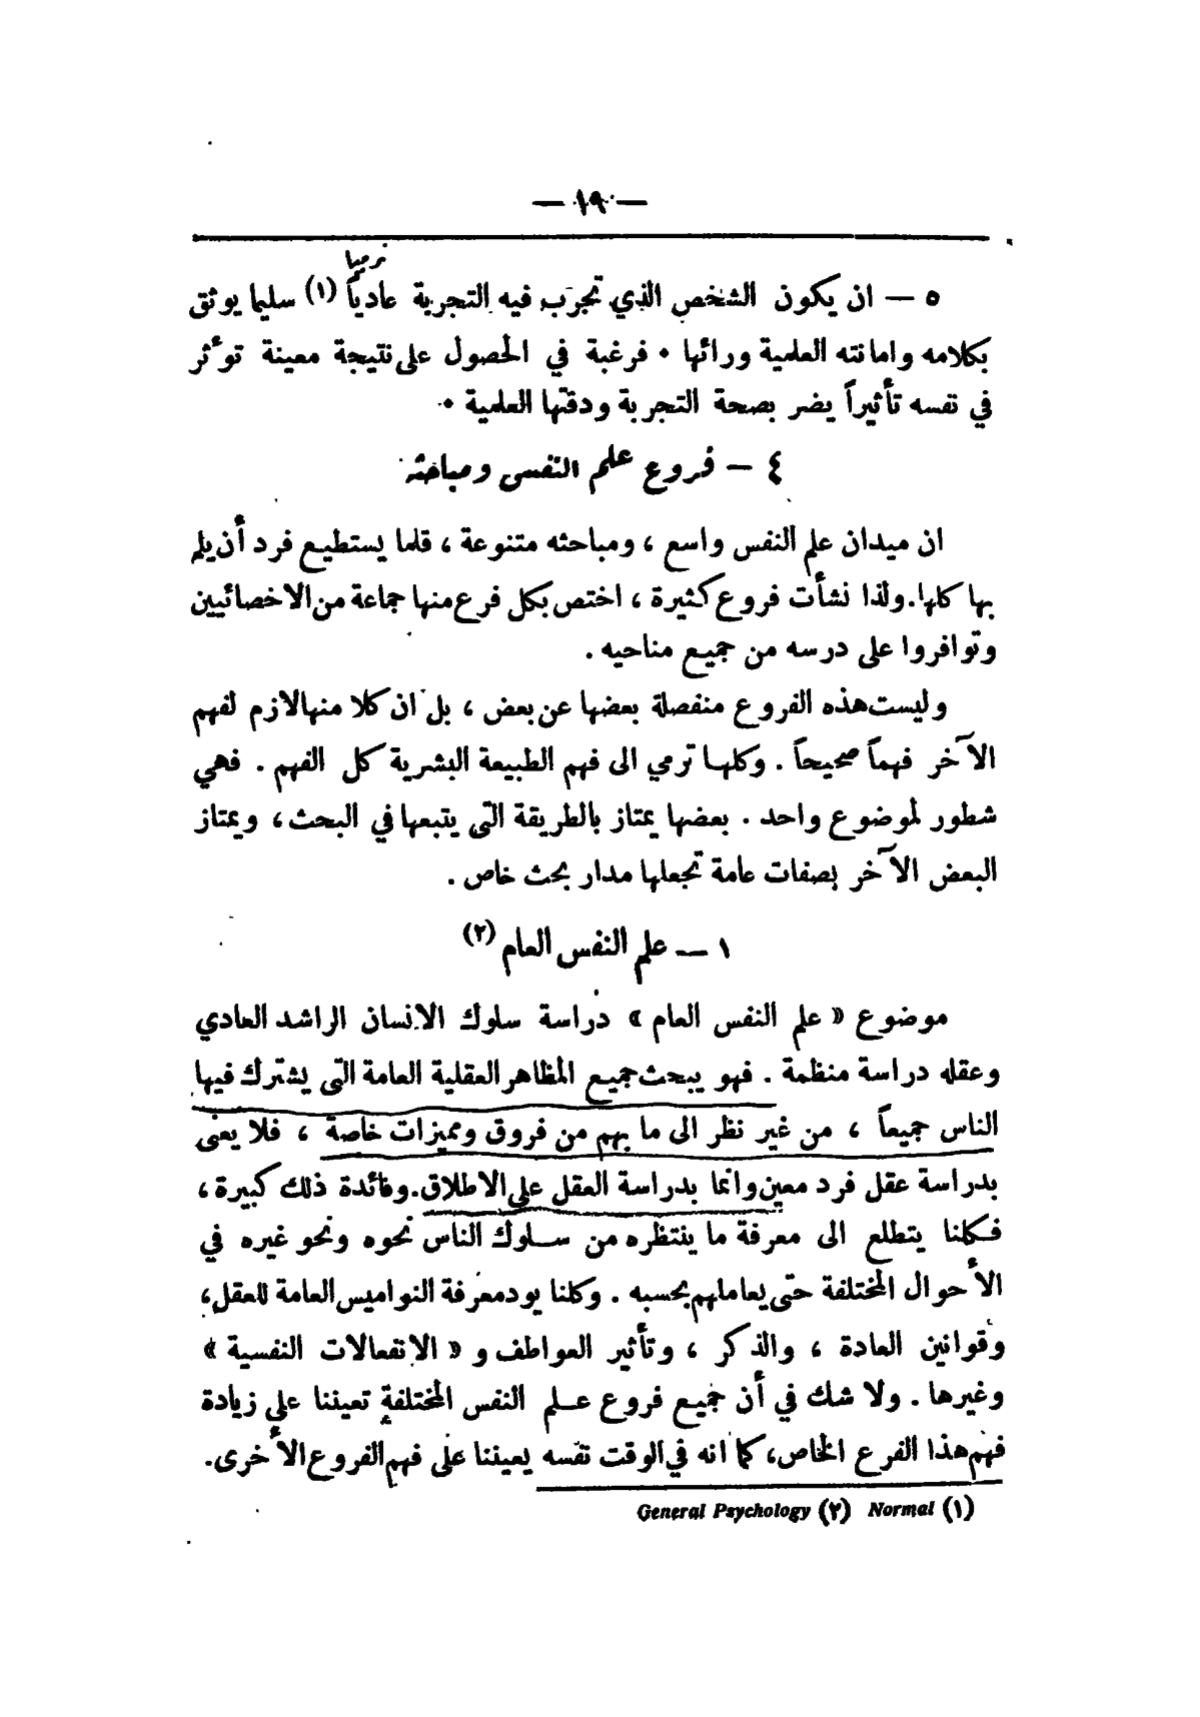 — ١٩ —
٥ — ان يكون الشخص الذي تجرَب فيه التجربة عادياً (١) سليما يوثق
بكلامه وامانته العلمية ورائها ٠ فرغبة في الحصول على نتيجة معينة توٴثر
في نفسه تأثيراً يضر بصحة التجربة ودقتها العلمية ٠
٤ — فروع علم النفس ومباحثه
ان ميدان علم النفس واسع ، ومباحثه متنوعة ، قلما يستطيع فرد أن يلم
بها كلها . ولذا نشأت فروع كثيرة ، اختص بكل فرع منها جماعة من الاخصائيين
وتوافروا على درسه من جميع مناحيه .
وليست هذه الفروع منفصلة بعضها عن بعض ، بل ان كلا منها لازم لفهم
الآخر فهماً صحيحاً . وكلها ترمي الى فهم الطبيعة البشرية كل الفهم . فهي
شطور لموضوع واحد . بعضها يمتاز بالطريقة التي يتبعها في البحث ، ويمتاز
البعض الآخر بصفات عامة تجعلها مدار بحث خاص .
١ — علم النفس العام (٢)
موضوع « علم النفس العام » دراسة سلوك الانسان الراشد العادي
وعقله دراسة منظمة . فهو يبحث جميع المظاهر العقلية العامة التي يشترك فيها
الناس جميعاً ، من غير نظر الى ما بهم من فروق ومميزات خاصة ، فلا يعنى
بدراسة عقل فرد معين وانما بدراسة العقل على الاطلاق . وفائدة ذلك كبيرة ،
فكلنا يتطلع الى معرفة ما ينتظره من سلوك الناس نحوه ونحو غيره في
الأحوال المختلفة حتى يعاملهم بحسبه . وكلنا يود معرفة النواميس العامة للعقل ،
وقوانين العادة ، والذكر ، وتأثير العواطف و « الانفعالات النفسية »
وغيرها . ولا شك في أن جميع فروع علم النفس المختلفة تعيننا على زيادة
فهم هذا الفرع الخاص ، كما انه في الوقت نفسه يعيننا على فهم الفروع الأخرى .
(١) Normal (٢) General Psychology